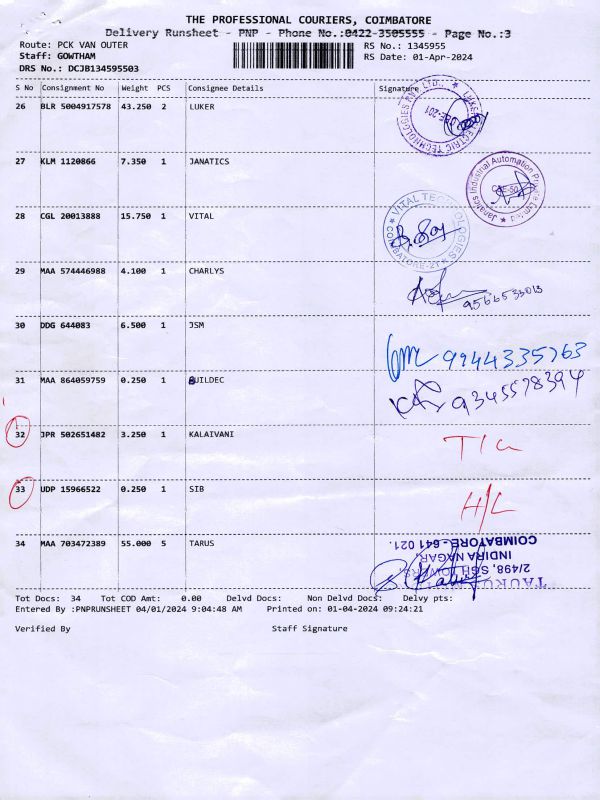 THE PROFESSIONAL COURIERS, COIMBATORE
Delivery Runsheet - PNP - Phone No.:0422-3505555 - Page No.:3
Route: PCK VAN OUTER RS No.: 1345955
Staff: GOWTHAM RS Date: 01-Apr-2024
DRS No.: DCJB134595503
S No Consignment No Weight PCS Consignee Details Signature
26 BLR 5004917578 43.250 2 LUKER
27 KLM 1120866 7.350 1 JANATICS
Janatics Industrial Automation Private Limited
28 CGL 20013888 15.750 1 VITAL
VITAL TECHNOLOGIES
COIMBATORE-21
29 MAA 574446988 4.100 1 CHARLYS
9566533013
30 DDG 644083 6.500 1 JSM
9944335763
31 MAA 864059759 0.250 1 BUILDEC
9345578394
32 JPR 502651482 3.250 1 KALAIVANI
33 UDP 15966522 0.250 1 SIB
H/L
34 MAA 703472389 55.000 5 TARUS
INDIRA NAGAR,
COIMBATORE - 641 021.
Tot Docs: 34 Tot COD Amt: 0.00 Delvd Docs: Non Delvd Docs: Delvy pts:
Entered By :PNPRUNSHEET 04/01/2024 9:04:48 AM Printed on: 01-04-2024 09:24:21
Verified By Staff Signature